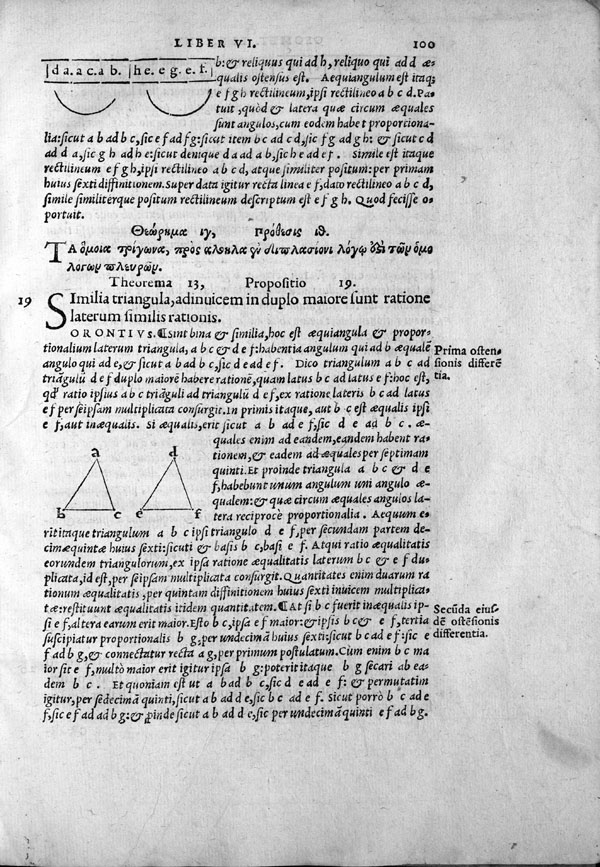 LIBER VI. 100
d a. a c. a b. | h e. e g. e. f.
b: & reliquus qui ad h, reliquo qui ad d æ-
qualis ostensus est. Aequiangulum est itaq;
e f g h rectilineum, ipsi rectilineo a b c d. Pa-
tuit, quòd & latera quæ circum æquales
sunt angulos, cum eodem habet proportiona-
lia: sicut a b ad b c, sic e f ad f g: sicut item b c ad c d, sic f g ad g h: & sicut c d
ad d a, sic g h ad h e: sicut denique d a ad a b, sic h e ad e f. Simile est itaque
rectilineum e f g h, ipsi rectilineo a b c d, atque similiter positum: per primam
huius sexti diffinitionem. Super data igitur recta linea e f, dato rectilineo a b c d,
simile similiterque positum rectilineum descriptum est e f g h. Quod fecisse o-
portuit.
Θεώρημα ιγ, πρόθεσις ιθ.
ΤΑ ὅμοια τρίγωνα, πρὸς ἄλληλα ἐν διπλασίονι λόγῳ ἐστὶ τῶν ὁμο
λόγων πλευρῶν.
Theorema 13, Propositio 19.
19 SImilia triangula, adinuicem in duplo maiore sunt ratione
laterum similis rationis.
ORONTIVS. ¶Sint bina & similia, hoc est æquiangula & propor-
tionalium laterum triangula, a b c & d e f: habentia angulum qui ad b æqualẽ
angulo qui ad e, & sicut a b ad b c, sic d e ad e f. Dico triangulum a b c ad
triãgulũ d e f duplo maiorẽ habere rationẽ, quam latus b c ad latus e f: hoc est,
qd' ratio ipsius a b c triãguli ad triangulũ d e f, ex ratione lateris b c ad latus
e f per seipsam multiplicata consurgit. In primis itaque, aut b c est æqualis ipsi
e f, aut inæqualis. Si æqualis, erit sicut a b ad e f, sic d e ad b c. æ-
quales enim ad eandem, eandem habent ra-
tionem, & eadem ad æquales per septimam
quinti. Et proinde triangula a b c & d e
f, habebunt unum angulum uni angulo æ-
qualem: & quæ circum æquales angulos la-
tera reciprocè proportionalia. Aequum e-
rit itaque triangulum a b c ipsi triangulo d e f, per secundam partem de-
cimæquintæ huius sexti: sicuti & basis b c, basi e f. Atqui ratio æqualitatis
eorundem triangulorum, ex ipsa ratione æqualitatis laterum b c & e f du-
plicata, id est, per seipsam multiplicata consurgit. Quantitates enim duarum ra
tionum æqualitatis, per quintam diffinitionem huius sexti inuicem multiplica-
tæ: restituunt æqualitatis itidem quantitatem. ¶At si b c fuerit inæqualis ip-
si e f, altera earum erit maior. Esto b c, ipsa e f maior: & ipsis b c & e f, tertia
suscipiatur proportionalis b g, per undecimã huius sexti: sicut b c ad e f: sic e
f ad b g, & connectatur recta a g, per primum postulatum. Cùm enim b c ma
ior sit e f, multò maior erit igitur ipsa b g: poterit itaque b g secari ab ea-
dem b c. Et quoniam est ut a b ad b c, sic d e ad e f: & permutatim
igitur, per sedecimã quinti, sicut a b ad d e, sic b c ad e f. Sicut porrò b c ad e
f, sic e f ad ad b g: & ꝓinde sicut a b ad d c, sic per undecimã quinti e f ad b g.
Prima osten-
sionis differẽ
tia.
a d
b c e f
Secũda eius-
dẽ ostẽsionis
differentia.